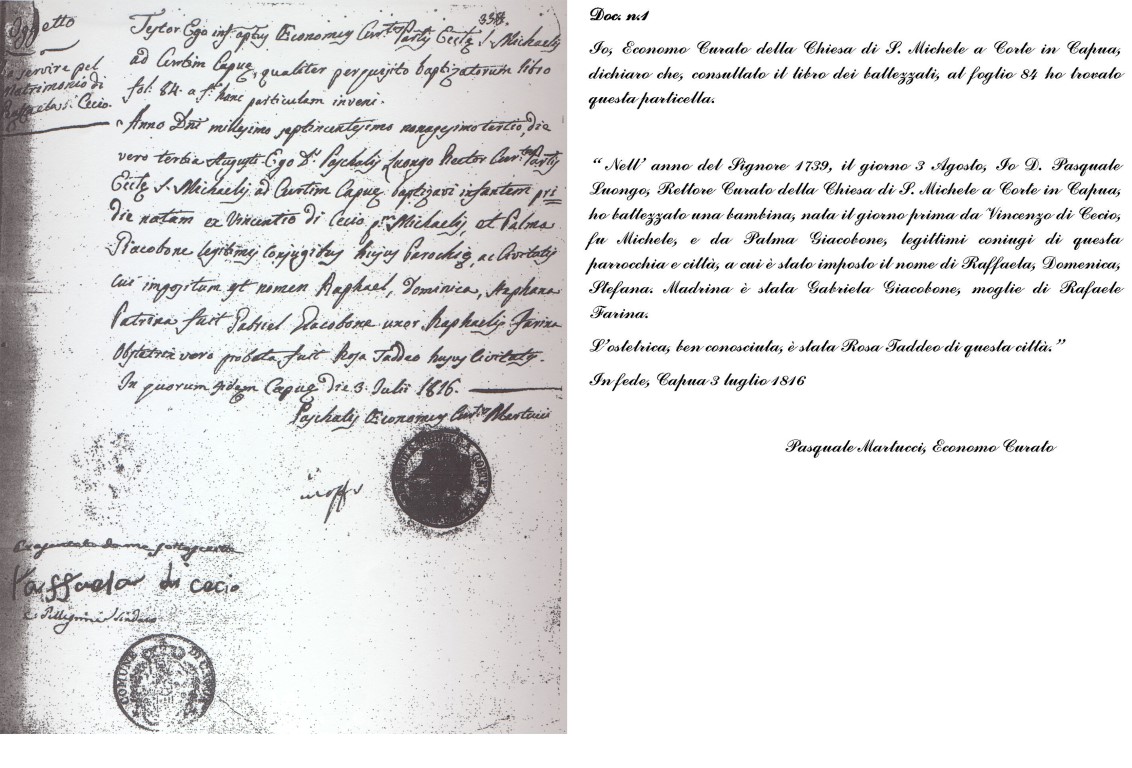 338.
Oggetto
servire pel
Matrimonio di
Raffaela di Cecio.
Testor Ego infraptus Œconomus Curtus Parlis Ecclę S. Michaelis
ad Curtim Capuę, qualiter perquisito baptizatorum libro
fol: 84. a fo hanc particulam inveni.
Anno Dni millesimo septincentesimo nonagesimo tertio, die
vero tertia Augusti Ego D. Paschalis Luongo Rector Curtus Parlis
Ecclę S. Michaelis ad Curtim Capuę baptizavi infantem pri=
die natam ex Vincentio di Cecio qm Michaelis, et Palma
Giacobone legitimis conjugibus hujus Parochię, ac Civitatis
cui impositum est nomen Raphael, Dominica, Stephana
Patrina fuit Gabriel Giacobone uxor Raphaelis Farina
Obstetrix vero probata fuit Rosa Taddeo hujus Civitatis.
In quorum fidem Capuę Die 3. Julii 1816.
Paschalis Œconomus Curtus Martucci
Raffaela di cecio
Pellegrini Sindaco
COMUNE DI
Doc. n.1
Io, Economo Curato della Chiesa di S. Michele a Corte in Capua,
dichiaro che, consultato il libro dei battezzati, al foglio 84 ho trovato
questa particella.
“ Nell’ anno del Signore 1739, il giorno 3 Agosto, Io D. Pasquale
Luongo, Rettore Curato della Chiesa di S. Michele a Corte in Capua,
ho battezzato una bambina, nata il giorno prima da Vincenzo di Cecio,
fu Michele, e da Palma Giacobone, legittimi coniugi di questa
parrocchia e città, a cui è stato imposto il nome di Raffaela, Domenica,
Stefana. Madrina è stata Gabriela Giacobone, moglie di Rafaele
Farina.
L’ostetrica, ben conosciuta, è stata Rosa Taddeo di questa città.”
In fede, Capua 3 luglio 1816
Pasquale Martucci, Economo Curato